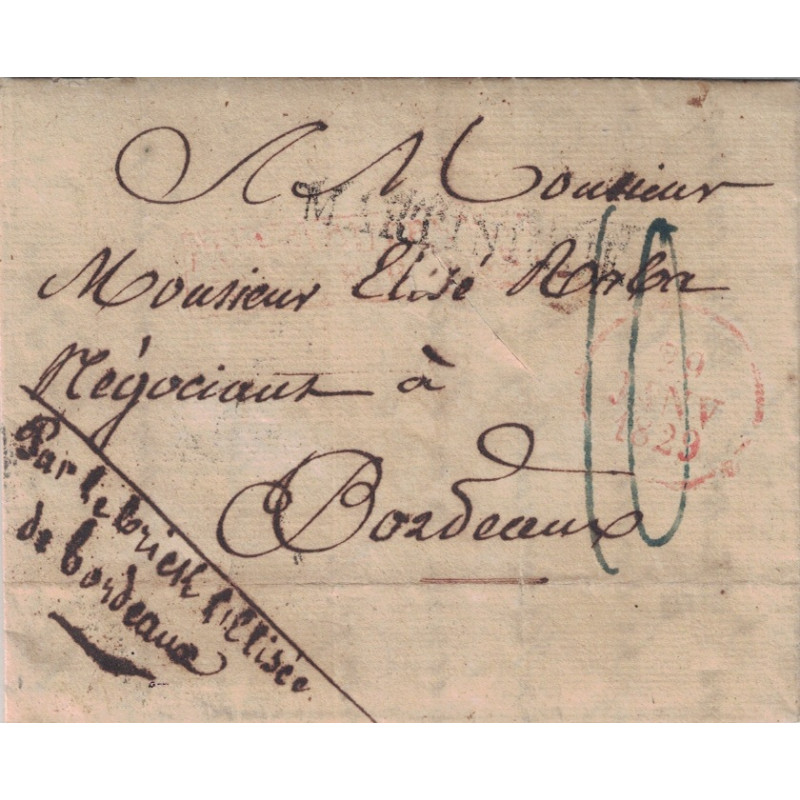 A Monsieur
MARTINIQUE
Monsieur Elisé
Négociant à
Bordeaux
20
JANV
1829
Par le brick l'Elisée
de bordeaux